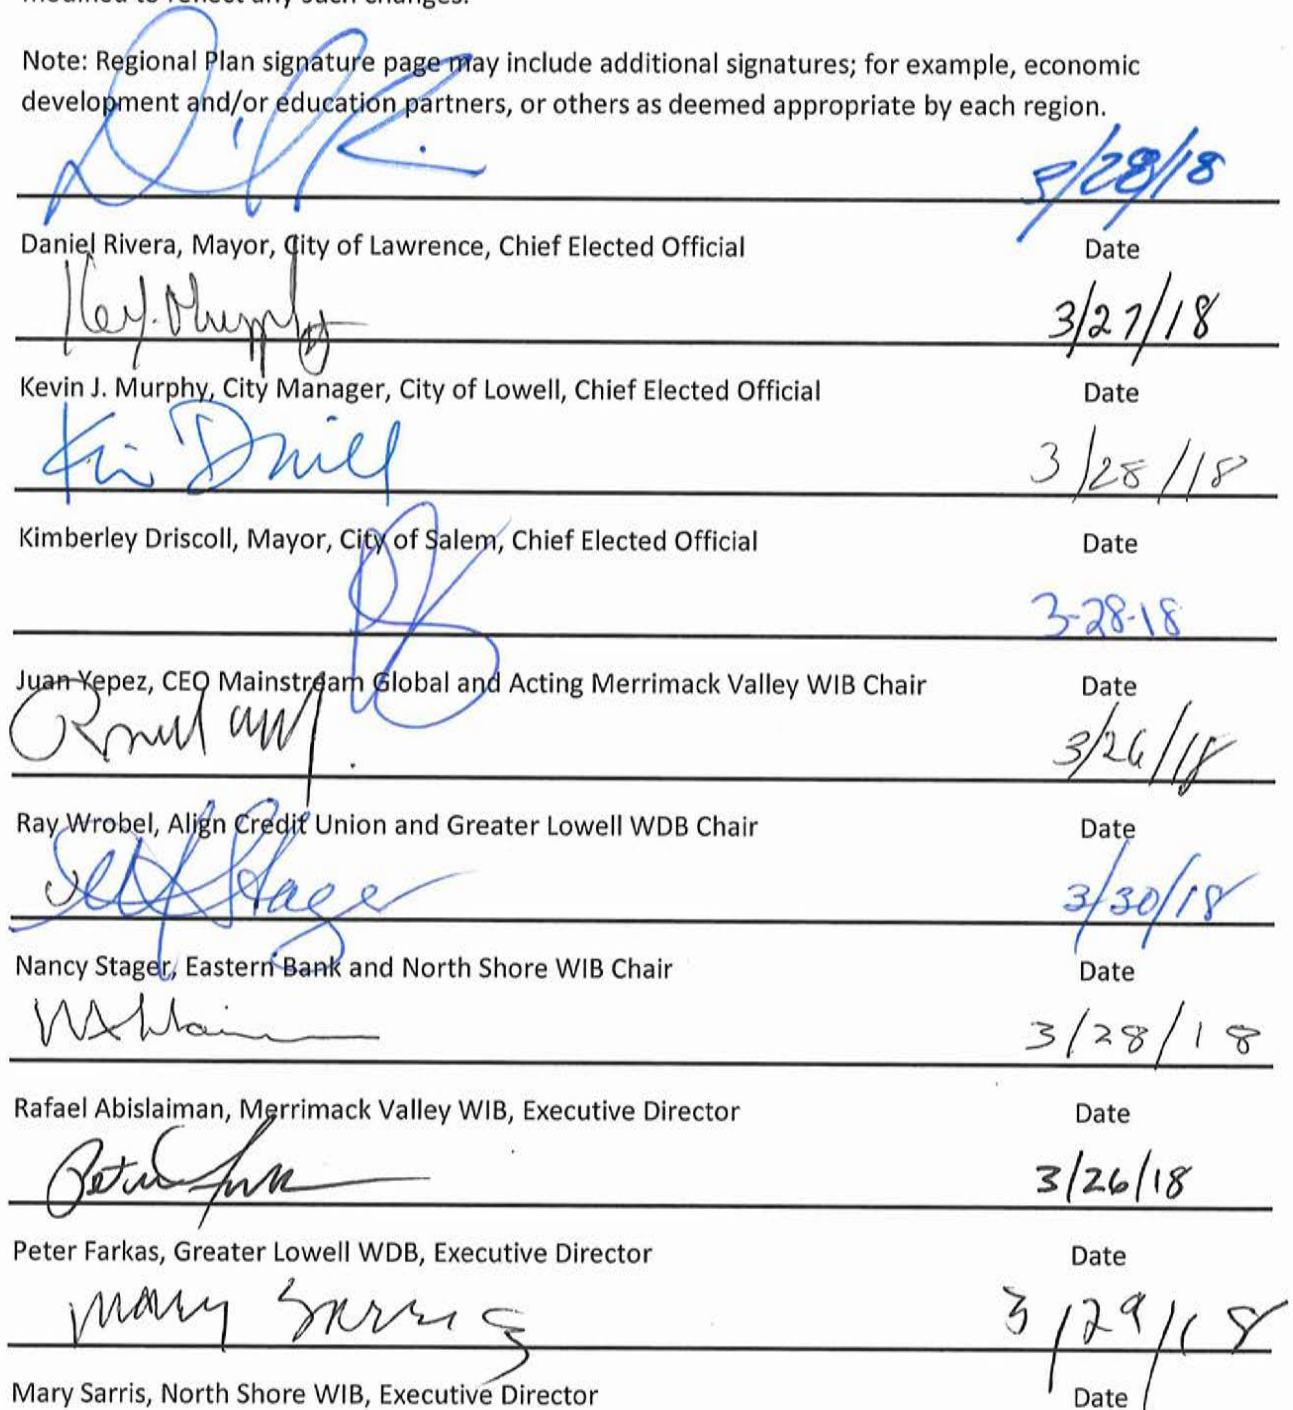 modified to reflect any such changes.
Note: Regional Plan signature page may include additional signatures; for example, economic
development and/or education partners, or others as deemed appropriate by each region.
3/28/18
Daniel Rivera, Mayor, City of Lawrence, Chief Elected Official Date
Kev J. Murphy 3/27/18
Kevin J. Murphy, City Manager, City of Lowell, Chief Elected Official Date
Kim Driscoll 3/28/18
Kimberley Driscoll, Mayor, City of Salem, Chief Elected Official Date
3-28-18
Juan Yepez, CEO Mainstream Global and Acting Merrimack Valley WIB Chair Date
3/26/18
Ray Wrobel, Align Credit Union and Greater Lowell WDB Chair Date
Stager 3/30/18
Nancy Stager, Eastern Bank and North Shore WIB Chair Date
3/28/18
Rafael Abislaiman, Merrimack Valley WIB, Executive Director Date
Peter Farkas 3/26/18
Peter Farkas, Greater Lowell WDB, Executive Director Date
Mary Sarris 3/29/18
Mary Sarris, North Shore WIB, Executive Director Date